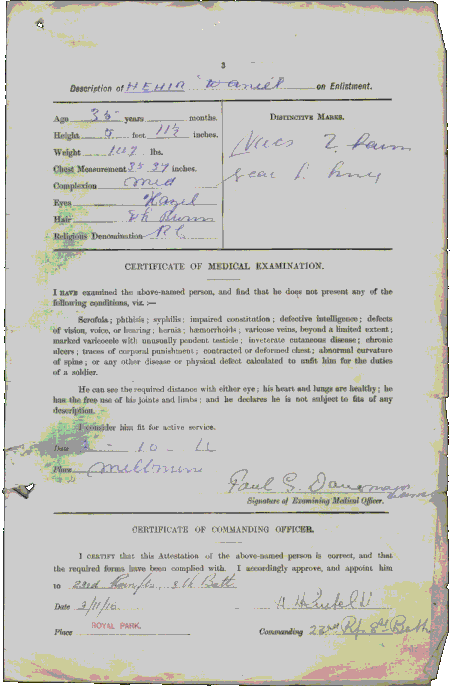 3
Description of HEHIR Daniel on Enlistment.
Age 35 years months.
Height 5 feet 11½ inches.
Weight lbs.
Chest Measurement 35 37 inches.
Complexion Med
Eyes Hazel
Hair Dk Brown
Religious Denomination R.C.
DISTINCTIVE MARKS.
Vacc 2
Scar L.
CERTIFICATE OF MEDICAL EXAMINATION.
I HAVE examined the above-named person, and find that he does not present any of the
following conditions, viz. :—
Scrofula; phthisis; syphilis; impaired constitution; defective intelligence; defects
of vision, voice, or hearing; hernia; hæmorrhoids; varicose veins, beyond a limited extent;
marked varicocele with unusually pendent testicle; inveterate cutaneous disease; chronic
ulcers; traces of corporal punishment; contracted or deformed chest; abnormal curvature
of spine; or any other disease or physical defect calculated to unfit him for the duties
of a soldier.
He can see the required distance with either eye; his heart and lungs are healthy; he
has the free use of his joints and limbs; and he declares he is not subject to fits of any
description.
I consider him fit for active service.
Date 10
Place
Paul G. Dane major
Signature of Examining Medical Officer.
CERTIFICATE OF COMMANDING OFFICER.
I CERTIFY that this Attestation of the above-named person is correct, and that
the required forms have been complied with. I accordingly approve, and appoint him
to 22nd Reinfts, 8th Batt
Date 3/11/16
Place ROYAL PARK. Commanding 22nd Rfs 8th Batt